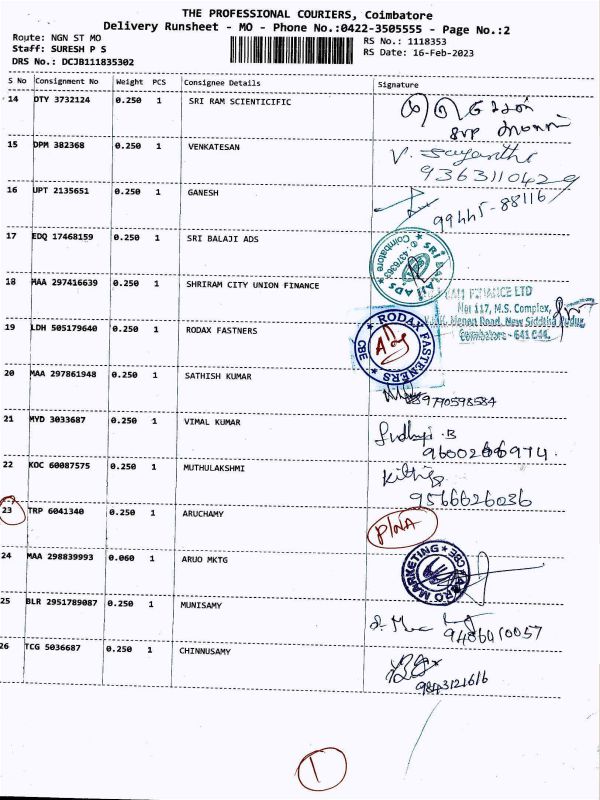 THE PROFESSIONAL COURIERS, Coimbatore
Delivery Runsheet - MO - Phone No.:0422-3505555 - Page No.:2
Route: NGN ST MO
RS No.: 1118353
Staff: SURESH P S
RS Date: 16-Feb-2023
DRS No.: DCJB111835302
S No Consignment No Weight PCS Consignee Details Signature
14 DTY 3732124 0.250 1 SRI RAM SCIENTICIFIC
15 DPM 382368 0.250 1 VENKATESAN
9363110429
16 UPT 2135651 0.250 1 GANESH
99445-88116
17 EDQ 17468159 0.250 1 SRI BALAJI ADS
SRI BALAJI ADS Coimbatore
18 MAA 297416639 0.250 1 SHRIRAM CITY UNION FINANCE
FINANCE LTD
No: 117, M.S. Complex,
Menon Road, New Siddha Pudur,
Coimbatore - 641 044.
19 LDH 505179640 0.250 1 RODAX FASTNERS
RODAX FASTENERS CBE
20 MAA 297861948 0.250 1 SATHISH KUMAR
9790598584
21 MYD 3033687 0.250 1 VIMAL KUMAR
9600266974.
22 KOC 60087575 0.250 1 MUTHULAKSHMI
9566626036
23 TRP 6041340 0.250 1 ARUCHAMY
P/NA
24 MAA 298839993 0.060 1 ARUO MKTG
MARKETING CBE
25 BLR 2951789087 0.250 1 MUNISAMY
26 TCG 5036687 0.250 1 CHINNUSAMY
9843121616
1